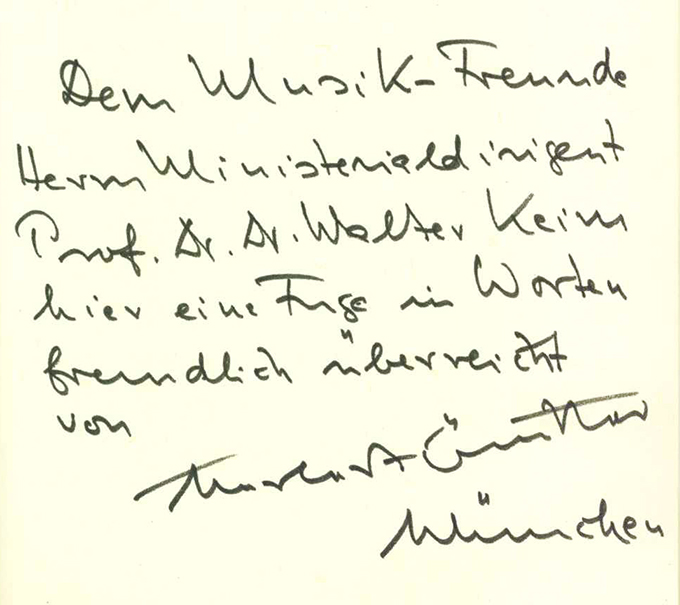 Dem Musik-Freunde
Herrn Ministerialdirigent
Prof. Dr. Dr. Walter Keim
hier eine Fuge in Worten
freundlich überreicht
von
Günther
München